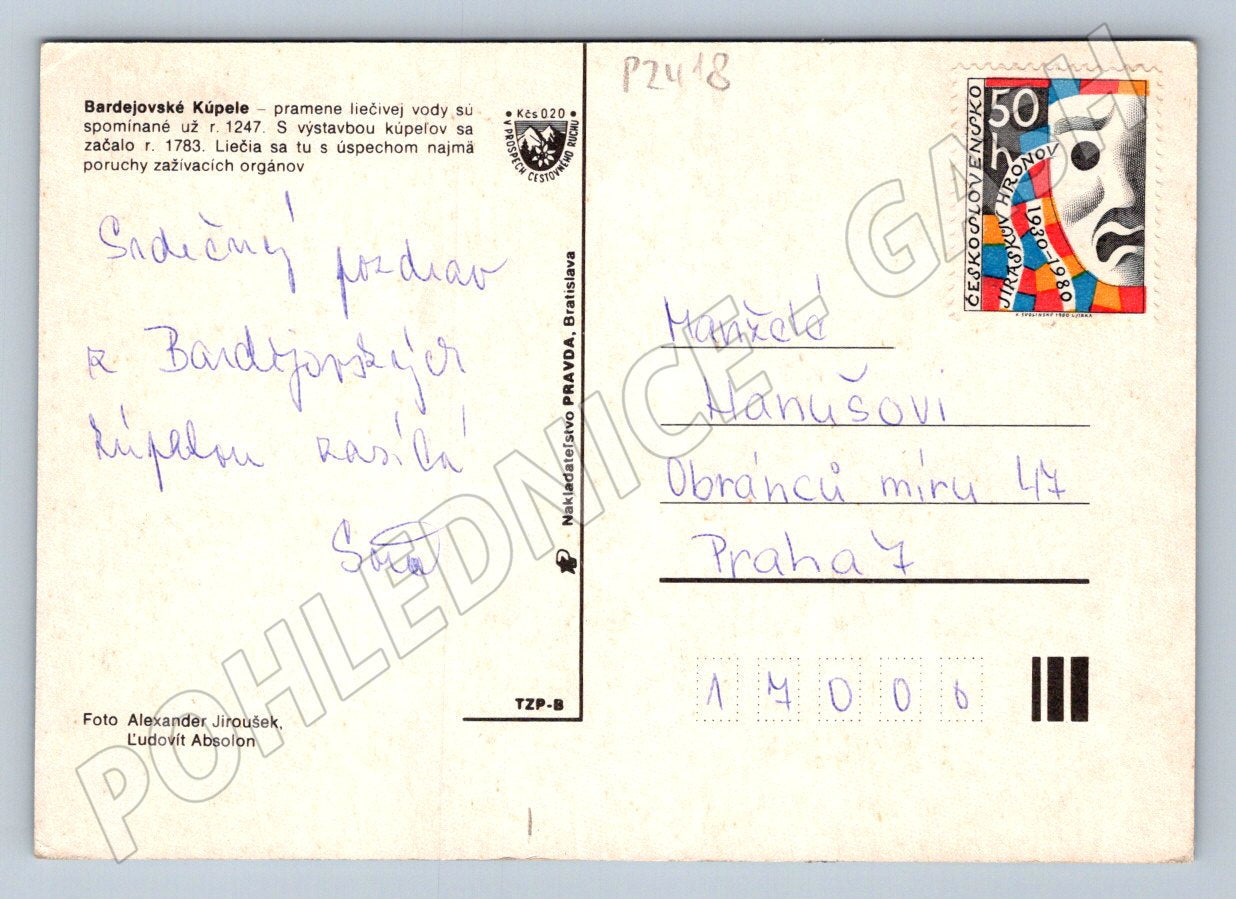 Bardejovské Kúpele – pramene liečivej vody sú
spomínané už r. 1247. S výstavbou kúpeľov sa
začalo r. 1783. Liečia sa tu s úspechom najmä
poruchy zažívacích orgánov
• Kčs 020 •
V PROSPECH CESTOVNÉHO RUCHU
Srdečný pozdrav
z Bardějovských
kúpelou zasílá
Nakladateľstvo PRAVDA, Bratislava
TZP-B
Foto Alexander Jiroušek,
Ľudovít Absolon
P2418
ČESKOSLOVENSKO
50 h
JIRÁSKŮV HRONOV
1930–1980
Manželé
Hanušovi
Obránců míru 47
Praha 7
17000
POHLEDNICE - GASH